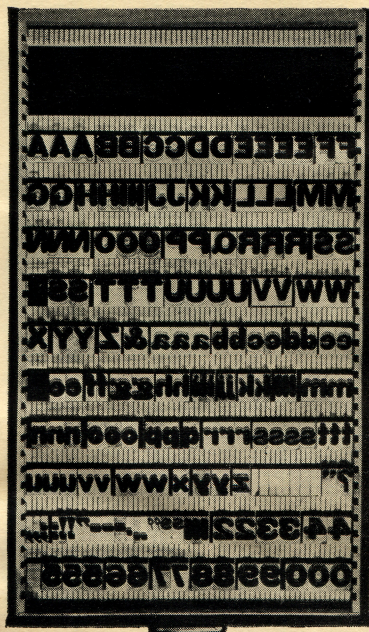 AAABBCCDDEEEEFF
GGHHIIIJJKKLLLMM
NNOOOPPQRRRSS
SSTTTUUUUVVWW
XYYZ&aaabbccddee
eeffgghhiiijjkklllmm
nnnoooppqrrrssssttt
uuuvvwwxyyz
22334 4
55566778899000